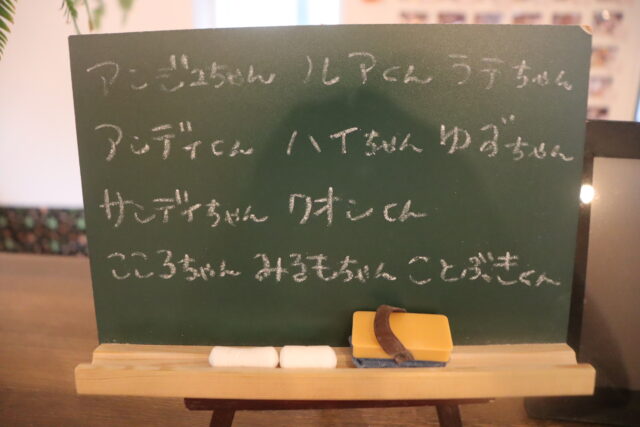 アンジュちゃん ルアくん ラテちゃん
アンディくん ハイちゃん ゆずちゃん
サンディちゃん クオンくん
こころちゃん みるもちゃん ことぶきくん